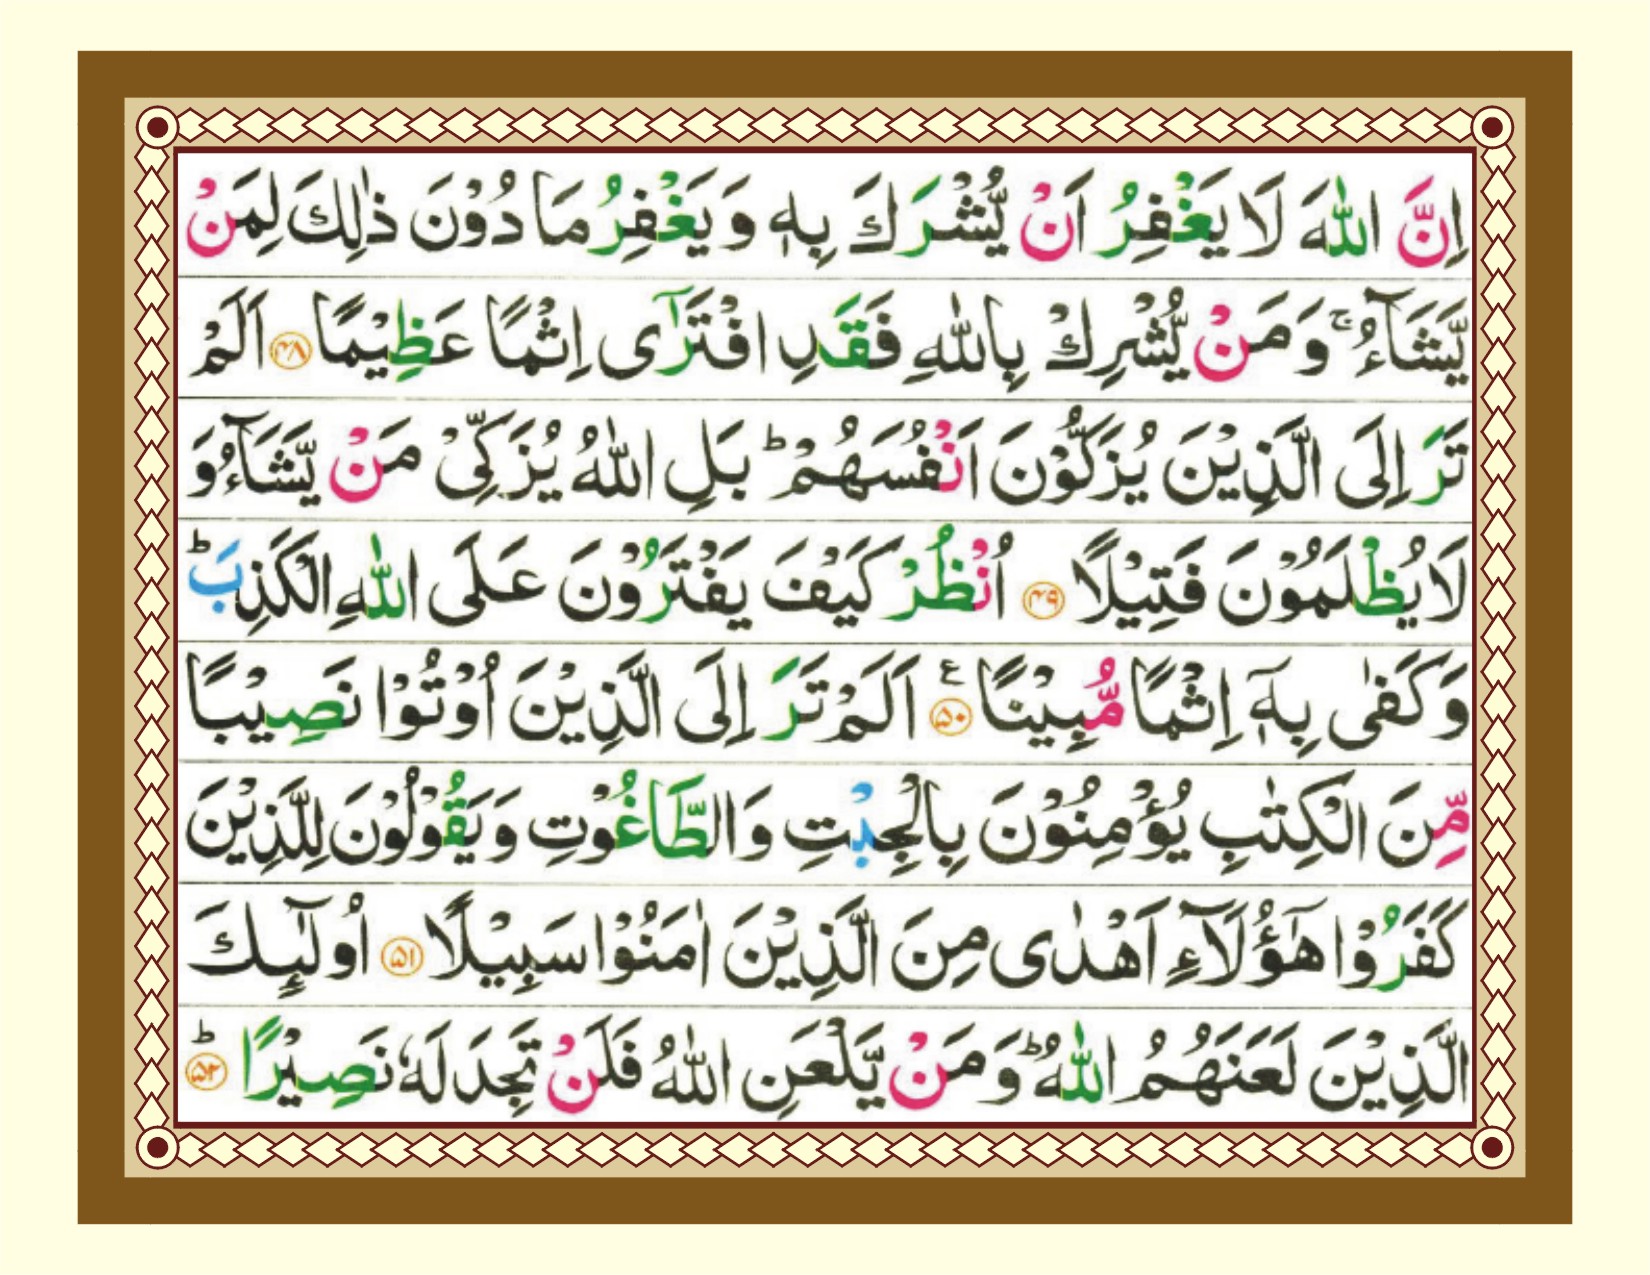 اِنَّ اللّٰهَ لَا يَغْفِرُ اَنْ يُّشْرَكَ بِهٖ وَيَغْفِرُ مَا دُوْنَ ذٰلِكَ لِمَنْ
يَّشَآءُ ۚ وَمَنْ يُّشْرِكْ بِاللّٰهِ فَقَدِ افْتَرٰٓى اِثْمًا عَظِيْمًا ۴۸ اَلَمْ
تَرَ اِلَى الَّذِيْنَ يُزَكُّوْنَ اَنْفُسَهُمْ ؕ بَلِ اللّٰهُ يُزَكِّىْ مَنْ يَّشَآءُ وَ
لَا يُظْلَمُوْنَ فَتِيْلًا ۴۹ اُنْظُرْ كَيْفَ يَفْتَرُوْنَ عَلَى اللّٰهِ الْكَذِبَ ؕ
وَكَفٰى بِهٖۤ اِثْمًا مُّبِيْنًا ۵۰ ع اَلَمْ تَرَ اِلَى الَّذِيْنَ اُوْتُوْا نَصِيْبًا
مِّنَ الْكِتٰبِ يُؤْمِنُوْنَ بِالْجِبْتِ وَالطَّاغُوْتِ وَيَقُوْلُوْنَ لِلَّذِيْنَ
كَفَرُوْا هٰٓؤُلَآءِ اَهْدٰى مِنَ الَّذِيْنَ اٰمَنُوْا سَبِيْلًا ۵۱ اُولٰٓئِكَ
الَّذِيْنَ لَعَنَهُمُ اللّٰهُ ؕ وَمَنْ يَّلْعَنِ اللّٰهُ فَلَنْ تَجِدَ لَهٗ نَصِيْرًا ؕ ۵۲